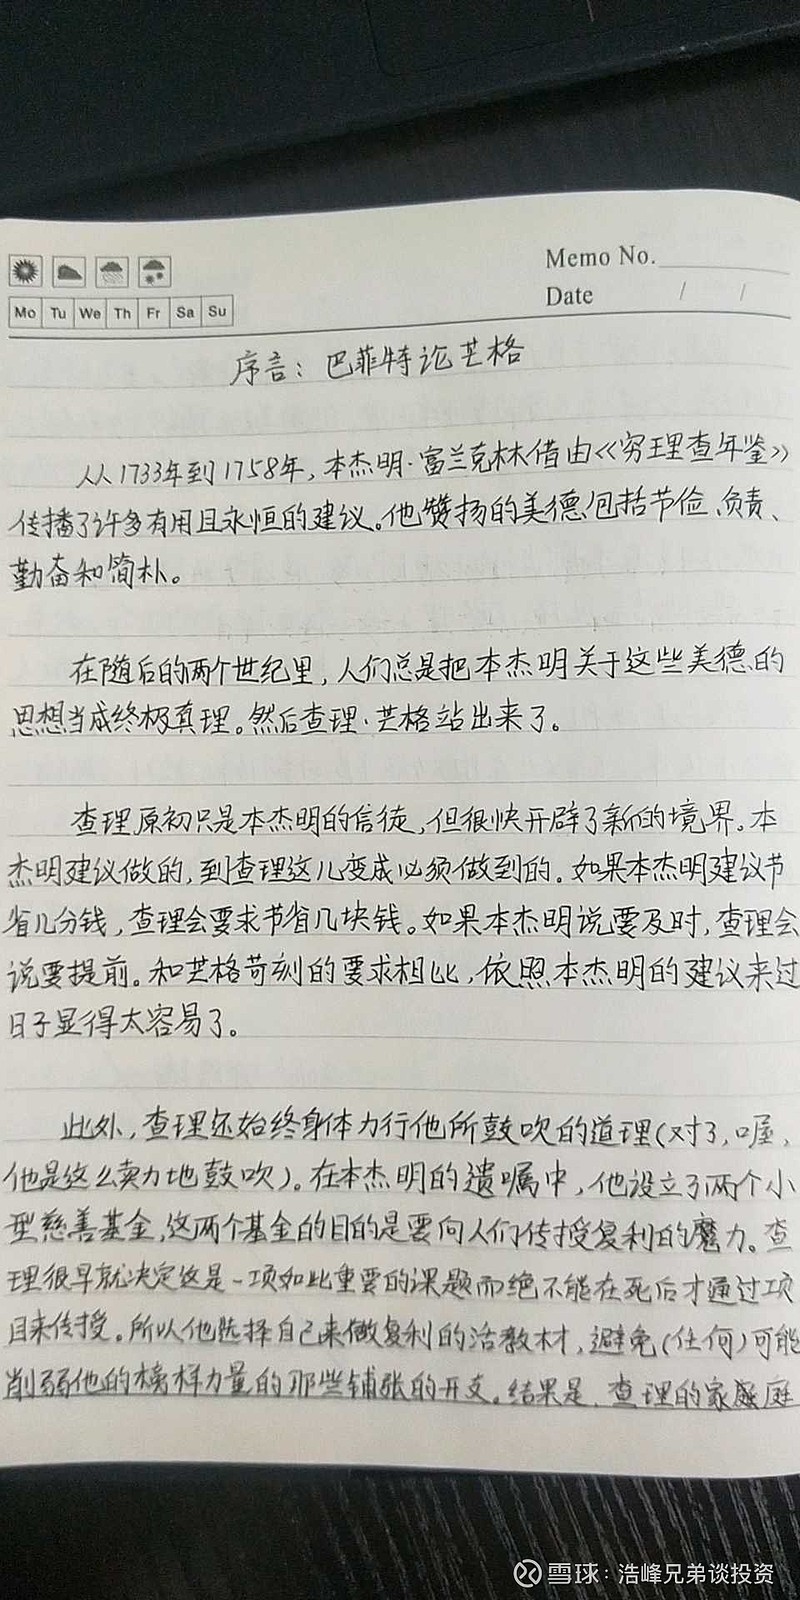 Memo No.
Mo Tu We Th Fr Sa Su
Date / /
序言：巴菲特论芒格
从1733年到1758年，本杰明·富兰克林借由《穷理查年鉴》
传播了许多有用且永恒的建议。他赞扬的美德包括节俭、负责、
勤奋和简朴。
在随后的两个世纪里，人们总是把本杰明关于这些美德的
思想当成终极真理。然后查理·芒格站出来了。
查理原初只是本杰明的信徒，但很快开辟了新的境界。本
杰明建议做的，到查理这儿变成必须做到的。如果本杰明建议节
省几分钱，查理会要求节省几块钱。如果本杰明说要及时，查理会
说要提前。和芒格苛刻的要求相比，依照本杰明的建议来过
日子显得太容易了。
此外，查理还始终身体力行他所鼓吹的道理（对了，喔，
他是这么卖力地鼓吹）。在本杰明的遗嘱中，他设立了两个小
型慈善基金，这两个基金的目的是要向人们传授复利的魔力。查
理很早就决定这是一项如此重要的课题而绝不能在死后才通过项
目来传授。所以他选择自己来做复利的活教材，避免（任何）可能
削弱他的榜样力量的那些铺张的开支。结果是，查理的家庭庭
雪球：浩峰兄弟谈投资